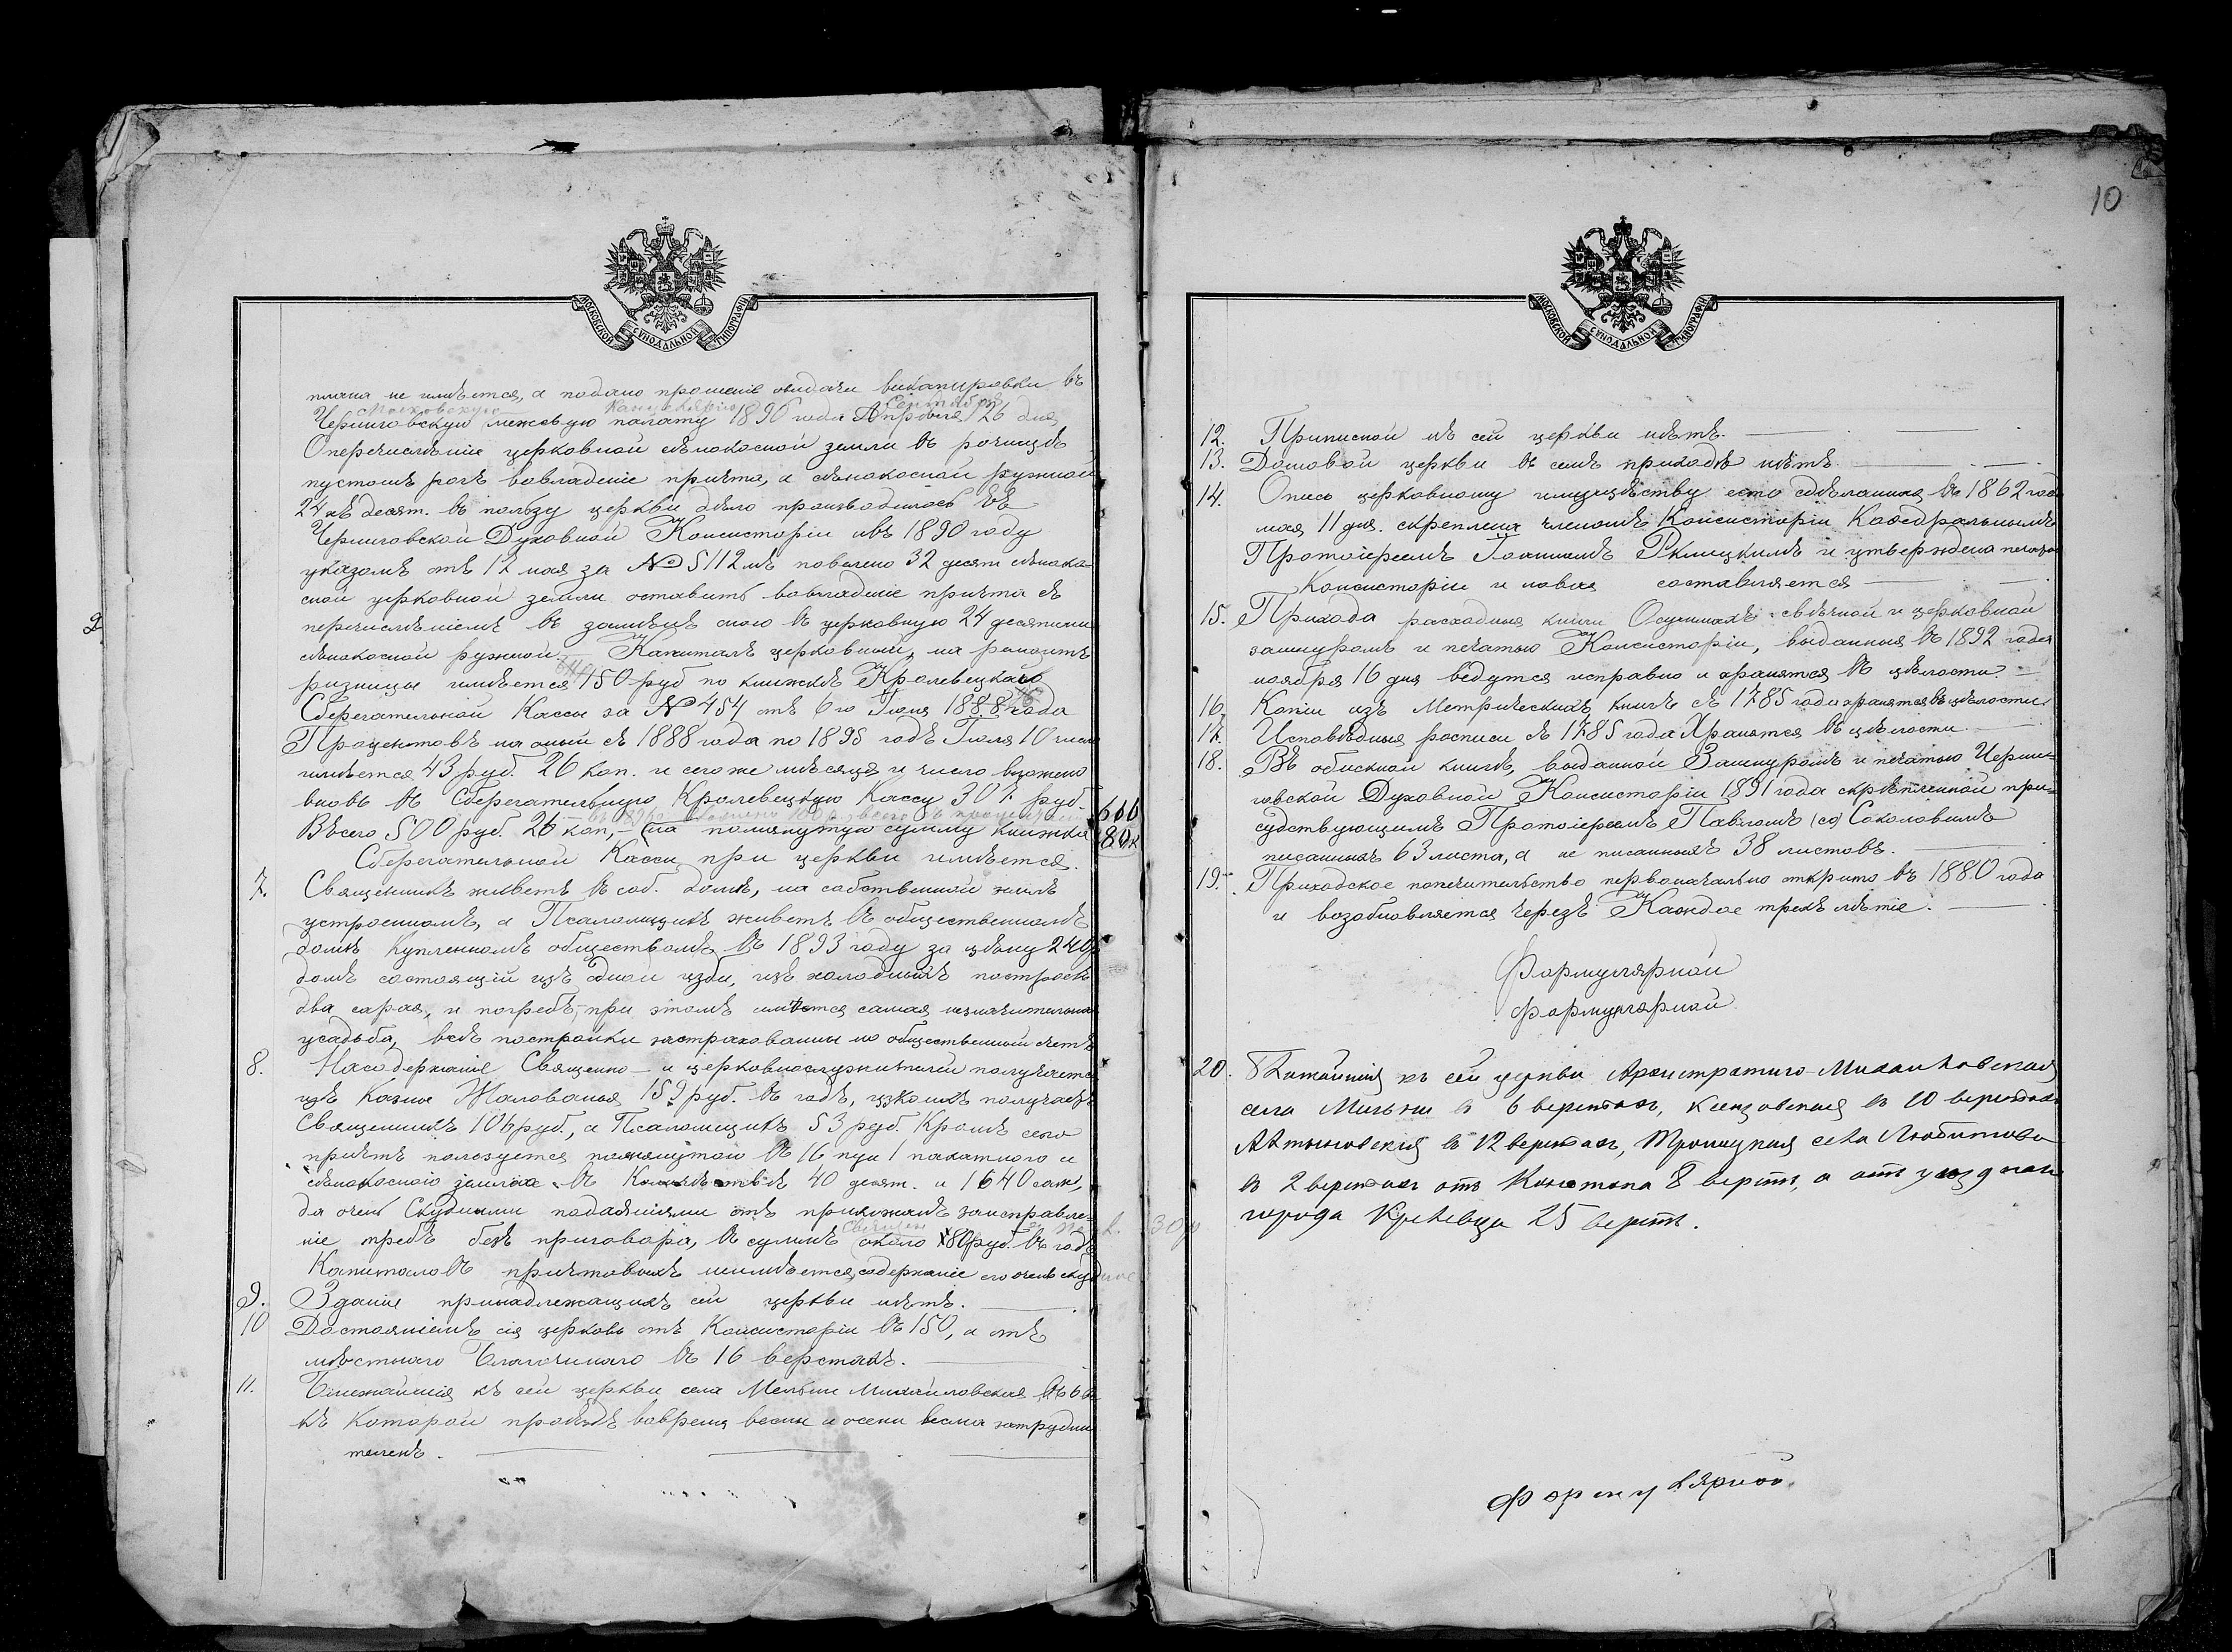 МОСКОВСКОЙ СѴНОДАЛЬНОЙ ТИПОГРАФІИ
плана не имѣется, а подано прошеніе овидачи викапировки въ
Московскую Канцелярію Сентября
Черниговскую межевую палату 1896 года Апрѣля 26 дня
О перечисленіе церковной сѣнокосной земли въ рочищѣ
пустошь рогъ вовладеніе причта, а сѣнокосной ружной
24хъ десят. въ пользу церкви дѣло производилось въ
Черниговской Духовной Консисторіи ивъ 1890 году
указомъ отъ 12 мая за № 5112мъ повелено 32 десят сѣноко
сной церковной земли оставить вовладеніе причта съ
перечисленіемъ въ замѣнъ оною въ церковную 24 десятини
сѣнокосной ружной. – Капиталъ церковный, на ремонтъ
ризницы имѣется 150 руб по книжкѣ Кролевецкой
Сберегательной Кассы за № 454 отъ 6го Іюня 1888 года
Процентовъ на оный съ 1888 года по 1895 годъ Іюля 10 число
имѣется 43 руб. 26 коп. и сегоже мѣсяца и число вложено
вновь въ Сберегательную Кролевецкую Кассу 307 руб.
Всего 500 руб. 26 коп, – на помянутую сумму книжка
Сберегательной Кассы при церкви имѣется.
7. Священникъ живетъ въ соб. домѣ, на собственной землѣ
устроенномъ, а Псаломщикъ живетъ въ общественномъ
домѣ купленномъ обществомъ въ 1893 году за цѣну 240р
домъ состоящій изъ одной избы, изъ холодныхъ построекъ
два сарая, и погребъ, при этомъ имѣется самая незначительная
усадьба, всѣ постройки застрахованны но общественный счетъ
8. Насодержаніе Священно – и церковнослужителей получается
изъ Казны Жалованья 159 руб. въ годъ, изкоихъ получаетъ
Священникъ 106 руб., а Псаломщикъ 53 руб. Кромѣ сего
причтъ пользуется помянутою въ 16 пун 1 пахатного и
сѣнокосного землею въ Количествѣ 40 десят. и 1640 саж,
да очень Скудными подаяніями отъ прихожанъ заисправле-
ніе требъ безъ приговора, въ суммѣ около 80 руб. въ годъ
Капиталовъ причтовыхъ неимѣется, содержаніе его очень скудное
9. Зданіи принадлежащихъ сей церкви нѣтъ.
10 Достояніемъ сія церковь отъ Консисторіи въ 150, а отъ
мѣстнаго Благочиннаго въ 16 верстахъ.
11. Ближайшія къ сей церкви села Мельни Михаиловская въ 6 в
къ Которой проѣздъ вовремя весны и осени весма затрудни
теленъ.
10
МОСКОВСКОЙ СѴНОДАЛЬНОЙ ТИПОГРАФІИ
12. Приписной къ сей церкви нѣтъ.
13. Домовой церкви въ семъ приходѣ нѣтъ.
14. Опись церковному имуществу есть сдѣланная въ 1862 год
мая 11 дня. скреплена членомъ Консисторіи Кафедральнымъ
Протоіереемъ Іоанномъ Рклицкимъ и утверждена печатью
Консисторіи и новая составляется
15. Прихода расходныя книги О суммахъ свѣчной и церковной
зашнуромъ и печатью Консисторіи, выданныя въ 1892 годa
ноября 16 дня ведутся исправно и хранятся въ цѣлости.
16. Копіи изъ Метрическихъ книгъ съ 1785 года хранятся въ цѣлости
17. Исповѣдныя росписи съ 1785 года Хранятся въ цѣлости.
18. Въ обискной книгѣ, выданной Зашнуромъ и печатью Черни-
говской Духовной Консисторіи 1891 года скрѣпленной при-
судствующимъ Протоіереемъ Павломъ Соколовымъ
писанныхъ 63 листа, а не писанныхъ 38 листовъ.
19. Приходское попечительство первоначально открыто въ 1880 года
и возобновляется черезъ Каждое трехъ лѣтіе.
Формулярной
Формулярной
20. Ближайшія къ сей церкви Архистратиго-Михаиловская
села Мельни въ 6 верстахъ, въ 10 верстахъ
въ 12 верстахъ, Троицкая села Любитова
въ 2 верстахъ отъ Конотопа 8 верстъ, а отъ уѣзднаго
города Кролевца 25 верстъ.
Формулярной